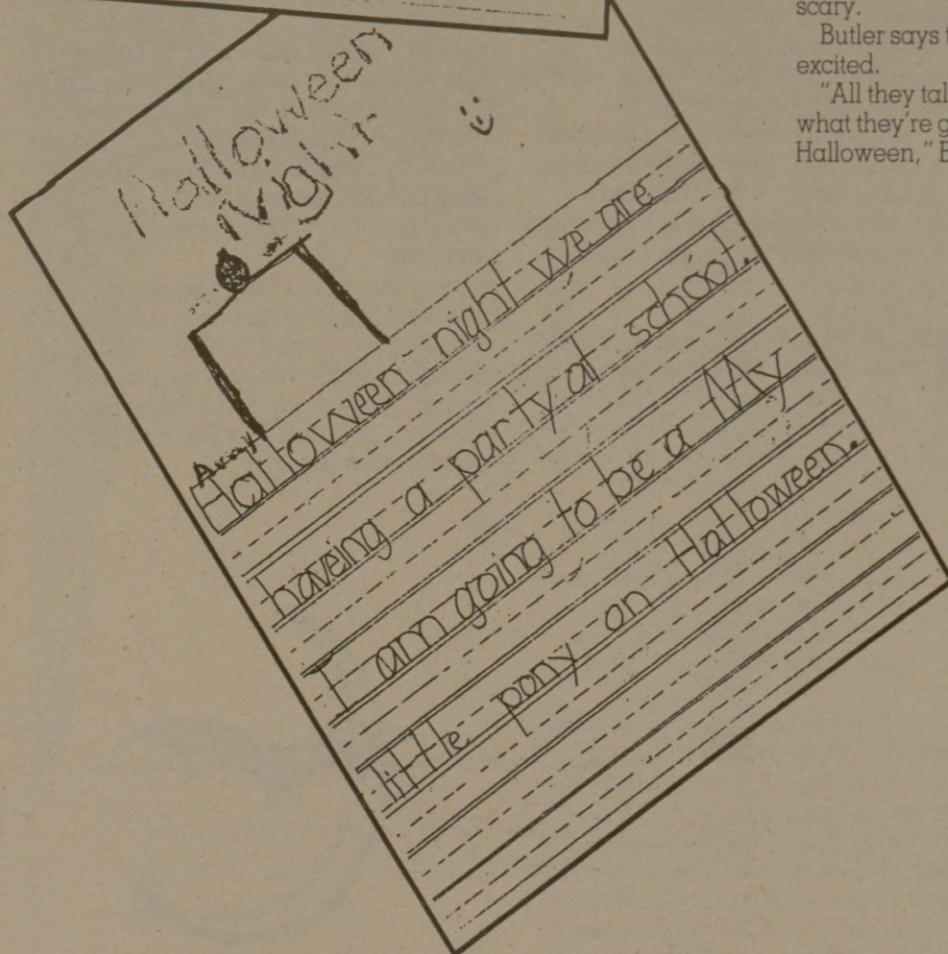 scary.
Butler says
excited.
"All they
what they're
Halloween,"
Halloween
Night
Halloween night we are
haveing a party at school.
I am going to be a My
little pony on Halloween.